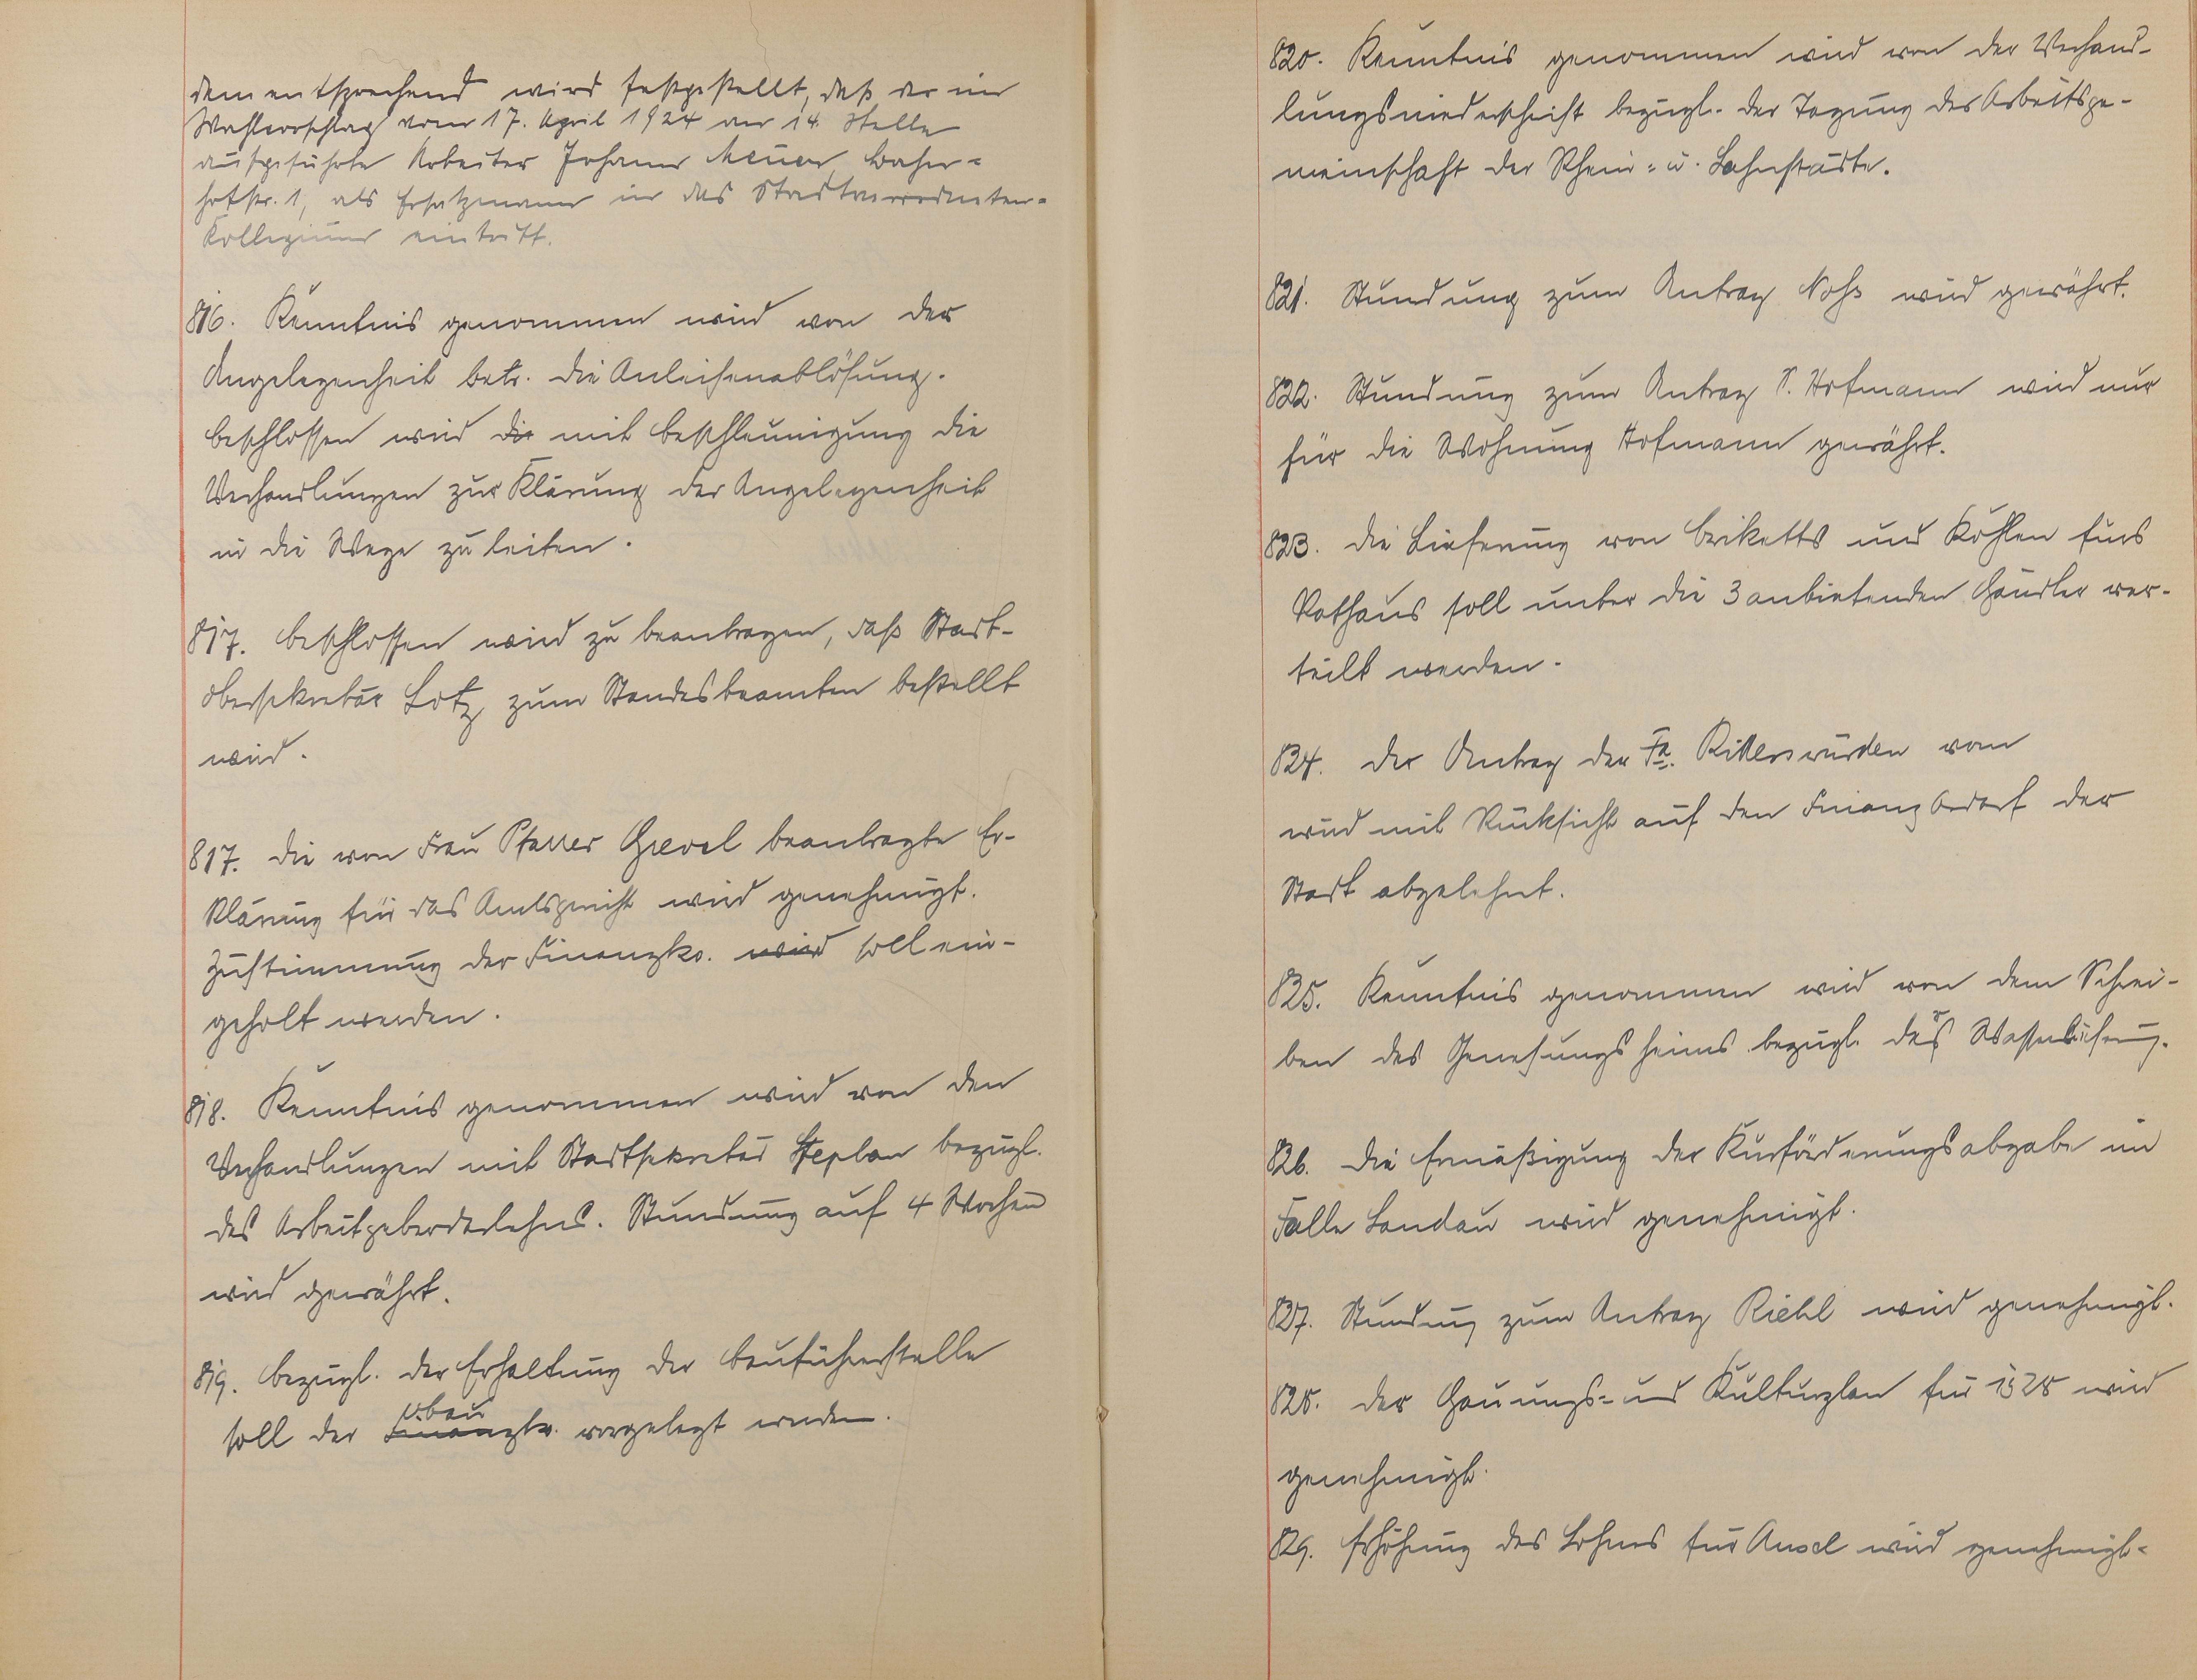 dementsprechend wird festgestellt, daß der im
Wahlvorschlag vom 17. April 1924 an 14. Stelle
aufgeführte Arbeiter Johann Meuer, Bahn-
hofstr. 1, als Ersatzmann in das Stadtverordneten-
Kollegium eintritt.
816. Kenntnis genommen wird von der
Angelegenheit betr. die Anleihenablösung.
Beschlossen wird die mit Beschleunigung die
Verhandlungen zur Klärung der Angelegenheit
in die Wege zu leiten.
817. Beschlossen wird zu beantragen, daß Stadt-
obersekretär Lotz zum Standesbeamten bestellt
wird.
817. Die von Frau Pfarrer Grevel beantragte Er-
klärung für das Amtsgericht wird genehmigt.
Zustimmung der Finanzko. wird soll ein-
geholt werden.
818. Kenntnis genommen wird von den
Verhandlungen mit Stadtsekretär Steplan bezügl.
des Arbeitgeberdarlehns. Stundung auf 4 Wochen
wird gewährt.
819. Bezügl. der Erhaltung der Bauführerstelle
soll der Finanzko. vorgelegt werden.
820. Kenntnis genommen wird von der Verhand-
lungsniederschrift bezügl. der Tagung der Arbeitsge-
meinschaft der Rhein- u. Lahnstädte.
821. Stundung zum Antrag Nohs wird gewährt.
822. Stundung zum Antrag S. Hofmann wird nur
für die Wohnung Hofmann gewährt.
823. Die Lieferung von Briketts und Kohlen fürs
Rathaus soll unter die 3 anbietenden Händler ver-
teilt werden.
824. Der Antrag der Fa. vom
wird mit Rücksicht auf den Finanzbedarf der
Stadt abgelehnt.
825. Kenntnis genommen wird von dem Schrei-
ben des Genesungsheims bezügl. der Wasserlieferung.
826. Die Ermäßigung der Kurförderungsabgabe im
Falle Landau wird genehmigt.
827. Stundung zum Antrag Riehl wird genehmigt.
828. Der Hauungs- und Kulturplan für 1928 wird
genehmigt.
829. Erhöhung des Lohnes für wird genehmigt.